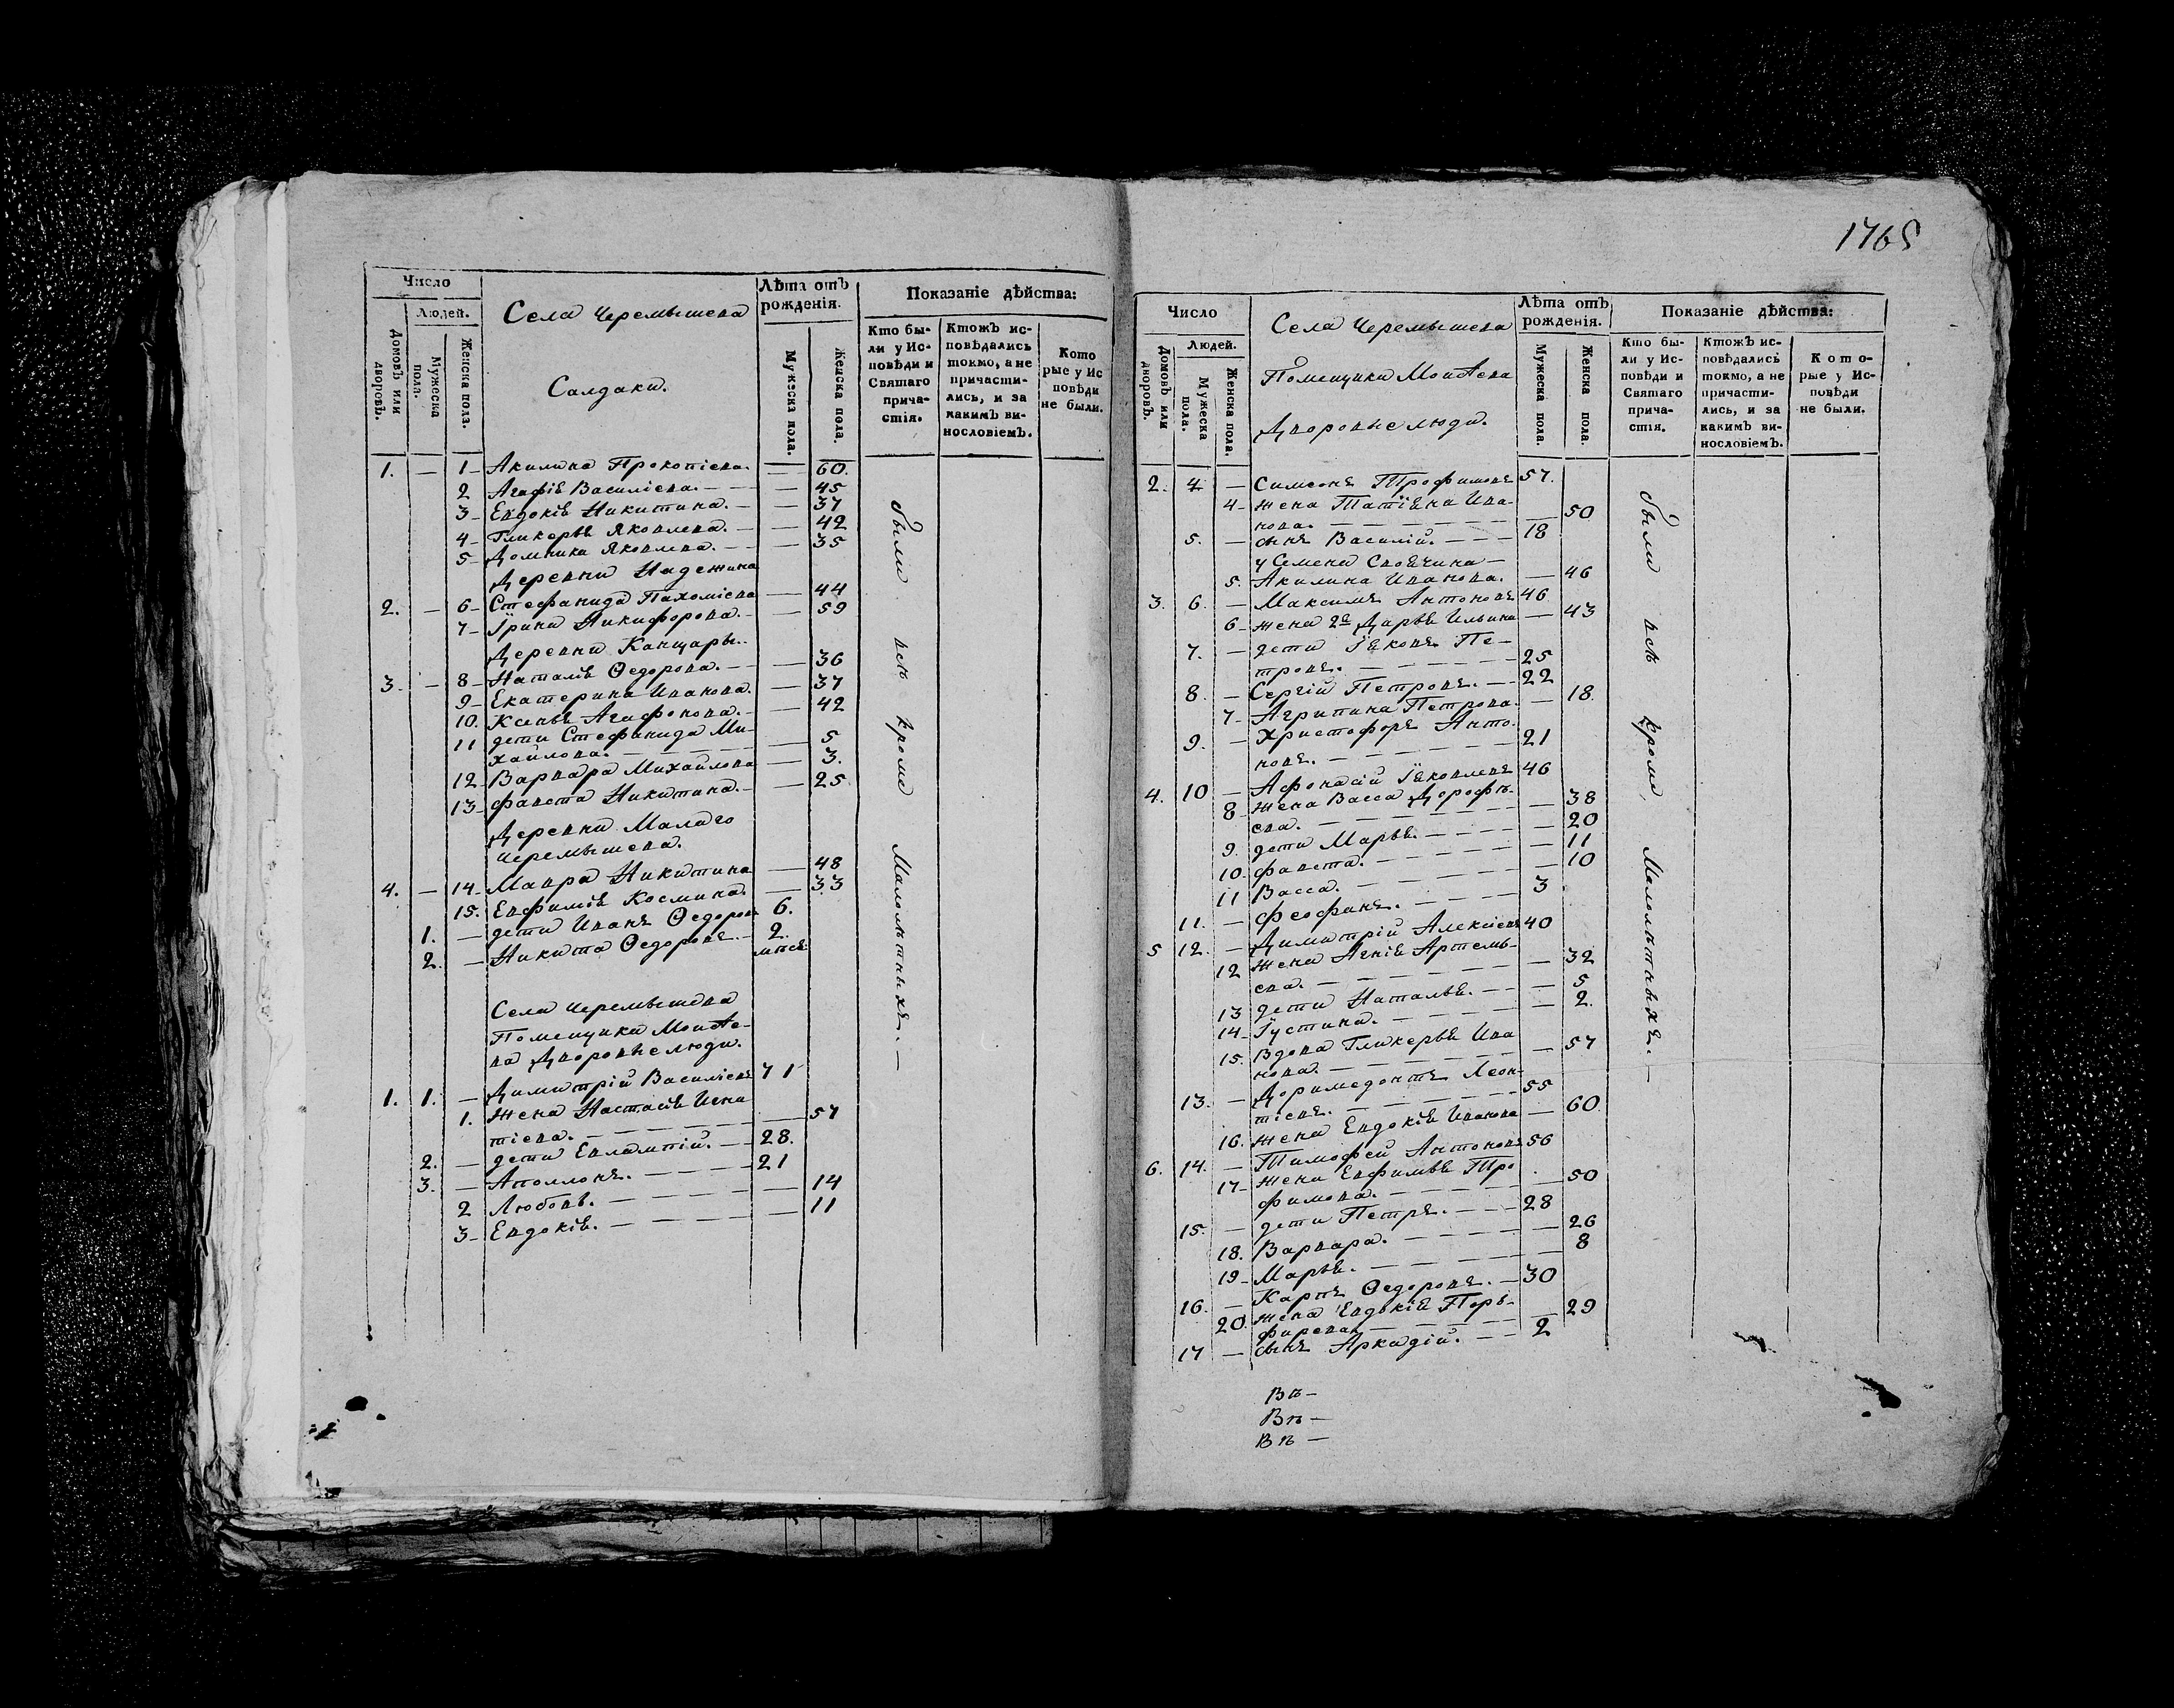 Число
Людей.
Домовъ или дворовъ.
Мужеска пола.
Женска пола.
Села Черемышева
Салдаки.
Лѣта отъ рожденія.
Мужеска пола.
Женска пола.
Показаніе дѣйства:
Кто бы-
ли у Ис-
повѣди и
Святаго
прича-
стія.
Ктожъ ис-
повѣдались
токмо, а не
причасти-
лись, и за
какимъ ви-
нословіемъ.
Кото
рые у Ис
повѣди
не были.
1. — 1 Акилина Прокопіева. — 60.
2 Агафія Василіева. — 45
3 Евдокія Никитина. — 37
4 Гликерья Яковлева. — 42
5 Домника Яковлева. — 35
Деревни Надежина
2. — 6 Стефанида Пахоміева — 44
7 Їрина Никифорова. — 59
Деревни Канцары.
3. — 8 Наталія Ѳедорова. — 36
9 Екатерина Иванова. — 37
10. Ксенья Агафонова. — 42
11 дети Стефанида Ми-
хайлова. — 5
12 Варвара Михайлова — 3.
13 фавста Никитина. — 25
Деревни Малаго
Черемышева.
4. — 14 Мавра Никитина — 48
15. Евфимія Космина. — 33
1. — дети Иванъ Ѳедоров 6.
2. — Никита Ѳедоровъ. — 2.
мтсъ
Села Черемышева
Помещика Моисѣе-
ва Дворовые люди.
1. 1. — Димитрій Василіевъ 71
1. Жена Настасія Игна
тіева. — 57
2. — дети Евлампій. — 28.
3. — Аполлонъ. — 21
2 Любовь. — 14
3 Евдокія. — 11
были всѣ кроме Малолѣтныхъ. —
1765
Число
Людей.
Домовъ или дворовъ.
Мужеска пола.
Женска пола.
Села Черемышева
Помещика Моисѣева
Дворовые люди.
Лѣта отъ рожденія.
Мужеска пола.
Женска пола.
Показаніе дѣйства:
Кто бы-
ли у Ис-
повѣди и
Святаго
прича-
стія.
Ктожъ ис-
повѣдались
токмо, а не
причасти-
лись, и за
какимъ ви-
нословіемъ.
Кото-
рые у Ис-
повѣди
не были.
2. 4. — Симеонъ Трофимовъ 57.
4 жена Татїяна Ива-
нова. — 50
5. — сынъ Василій. — 18
у Семена Своячина —
5. Акилина Иванова. — 46
3. 6. — Максимъ Антоновъ 46
6 жена 2я Дарья Ильина — 43
7. — дети Їяковъ Пе-
тровъ. — 25
8. — Сергій Петровъ. — 22
7 Агрипина Петрова. — 18.
9. — Христофоръ Анто-
новъ. — 21
4. 10 — Афонасій Їяковлевъ 46
8 Жена Васса Дорофѣ-
ева. — 38
9. дети Марья. — 20
10. фавста. — 11
11 Васса. — 10
11. — Феофанъ. — 3
5 12. — Димитрій Алексіевъ 40
12 Жена Агнія Артемь-
ева. — 32
13 дети Наталья. — 5
14 Їустина. — 2.
15. Вдова Гликерья Ива
нова. — 57
13. — Доримедонтъ Леон-
тіевъ. — 55
16. Жена Евдокія Иванова — 60
6. 14. — Тимофей Антоновъ 56
17 Жена Евфимья Тро
фимова. — 50
15. — дети Петръ. — 28
18. Варвара. — 26
19 Марья. — 8
16. — Карпъ Ѳедоровъ. — 30
20. Жена Евдокія Пор-
фирева — 29
17 — сынъ Аркадій. — 2
были всѣ кроме Малолѣтныхъ. —
Въ —
Въ —
Въ —